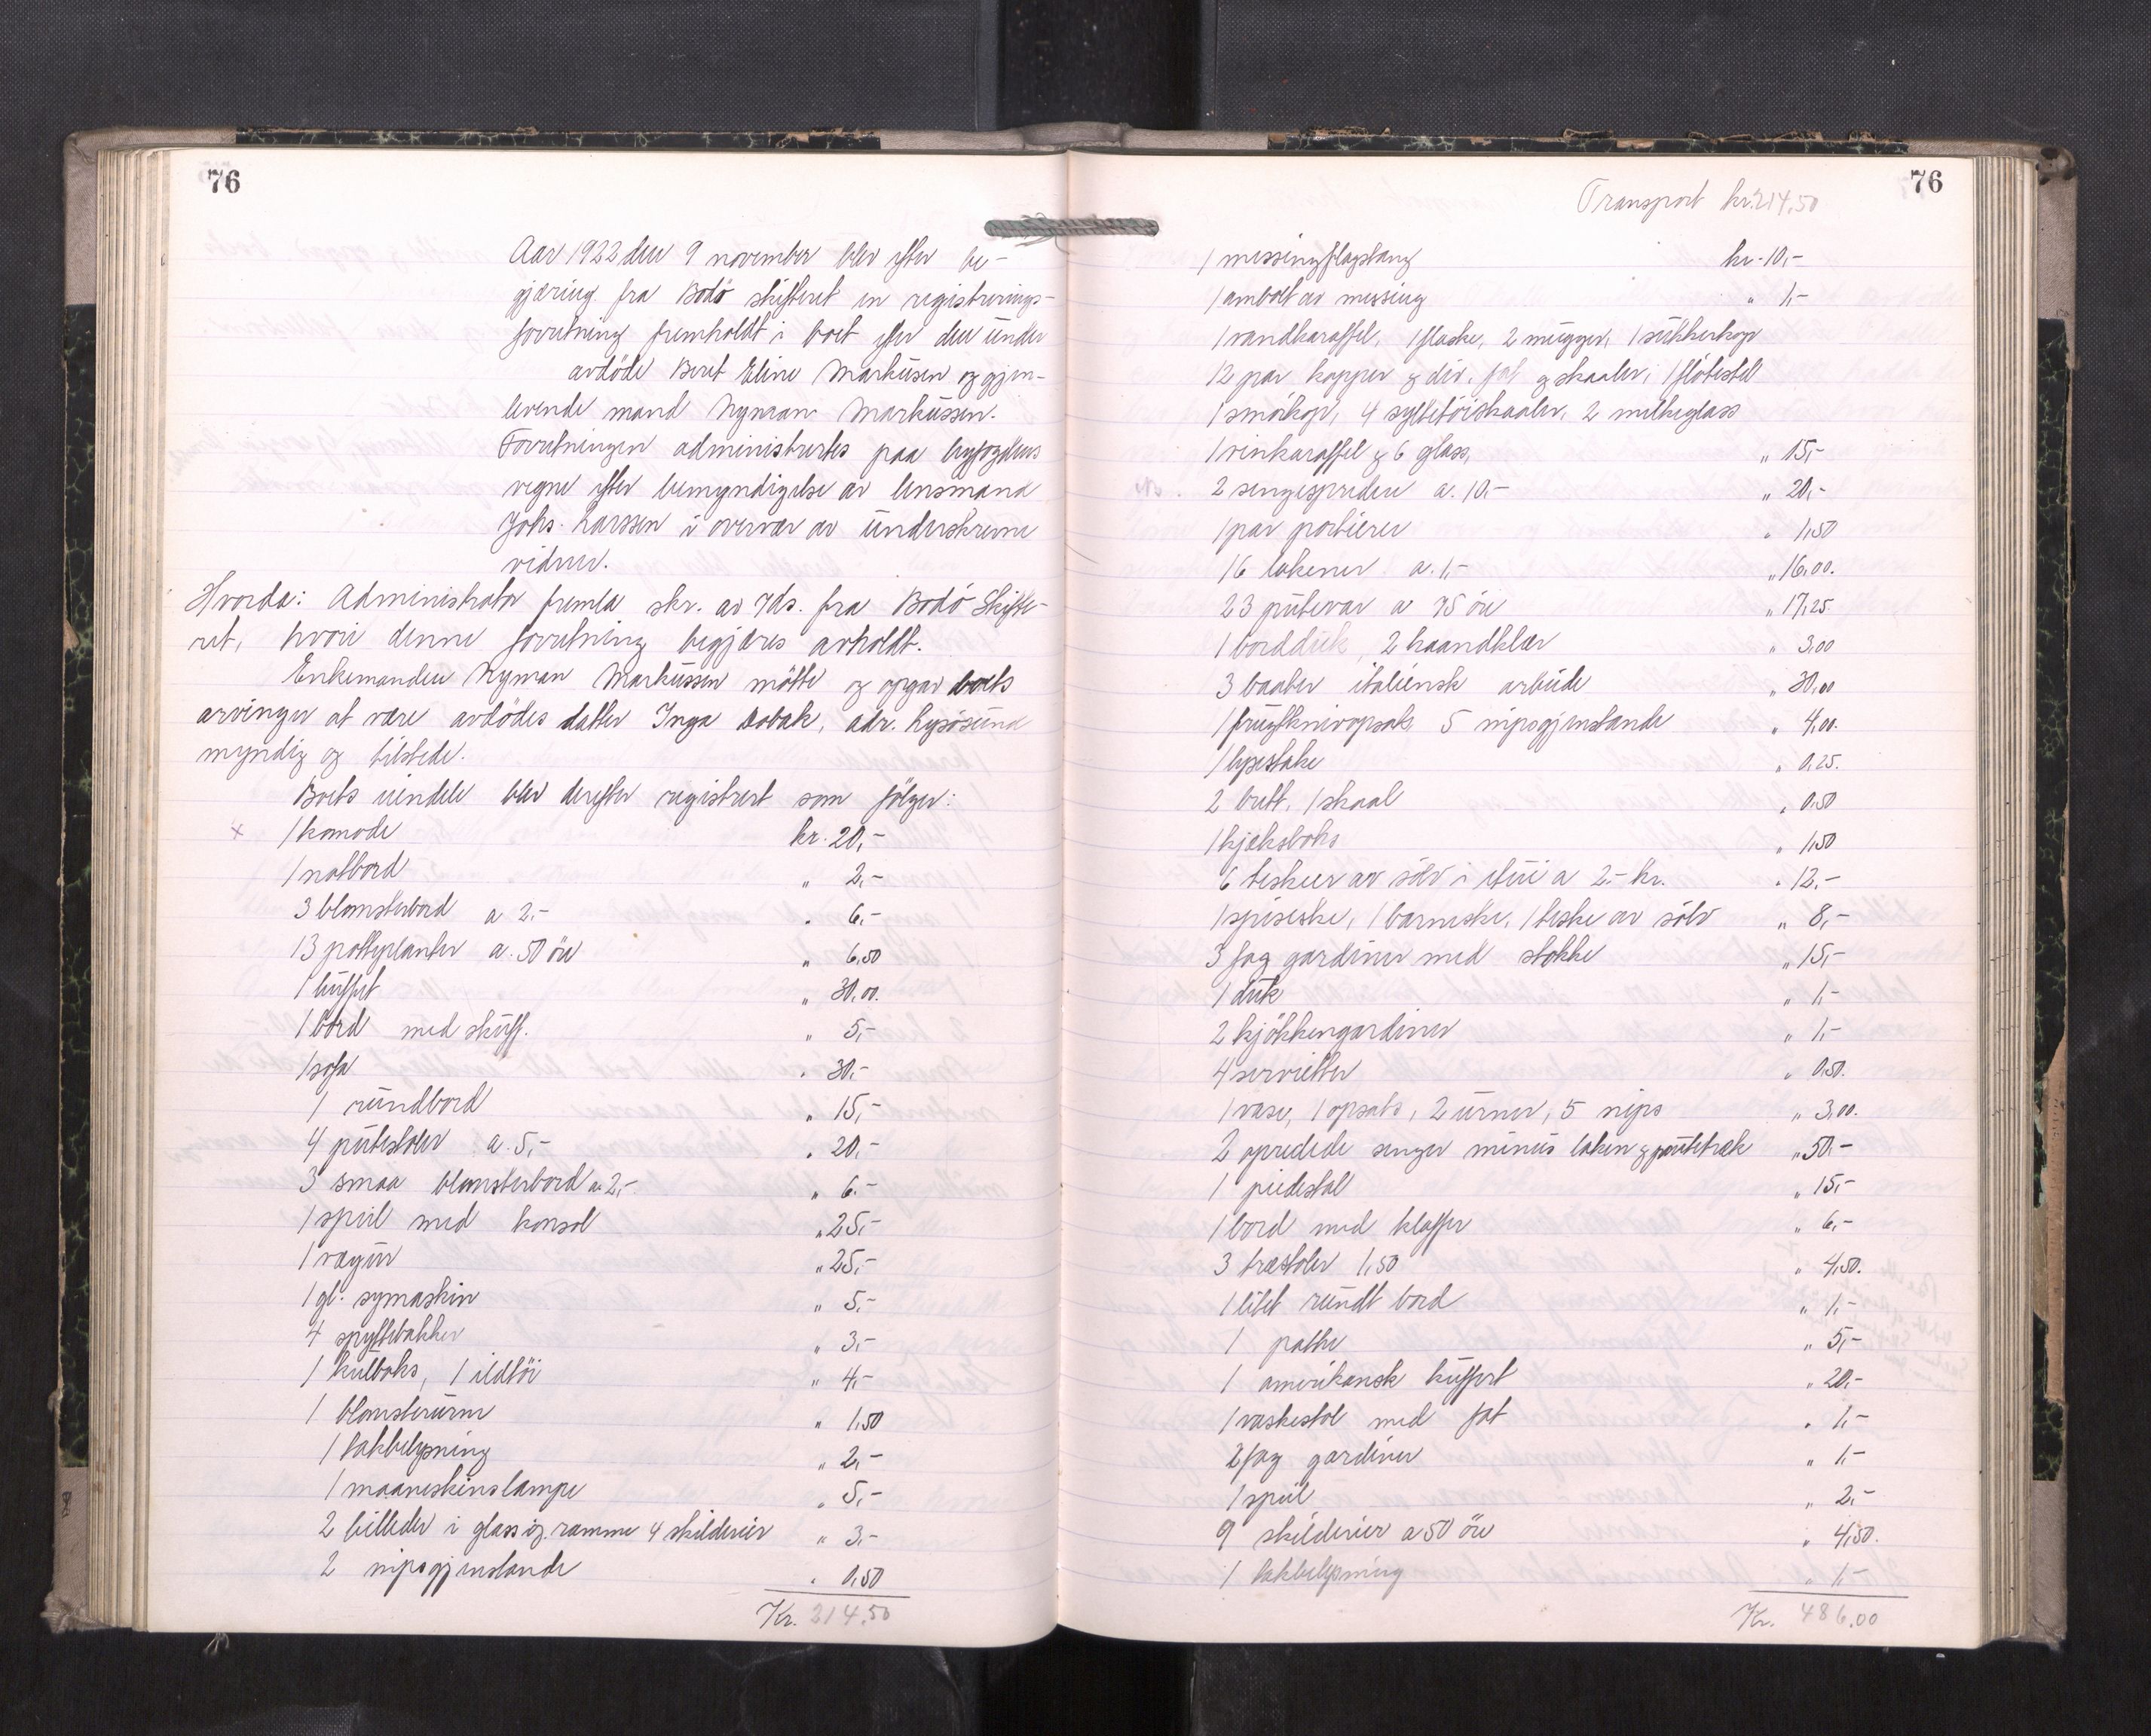 76
Aar 1922 den 9 november blev efter be-
gjæring fra Bodö skifteret en registrerings-
forretning fremholdt i boet efter den under
avdöde Beret Eline Markussen og gjen-
levende mand Nyman Markussen.
Forretningen administrertes paa byfogdens
vegne efter bemyndigelse av lensmand
Johs. Larssen i overvær av underskrevne
vidner.
Hvorda: Administrator fremla skr. av 7ds. fra Bodö Skifte-
ret, hvori denne forretning begjæres avholdt.
Enkemanden Nyman Markussen mötte og opgav boets
arvinger at være avdödes datter Inga Kobak, adr. Lysösund
myndig og tilstede.
Boets eiendele blev derefter registrert som fölger:
x 1 komode kr. 20,-
1 natbord " 2,-
3 blomsterbord a 2,- " 6,-
13 potteplanter a. 50 öre " 6,50
1 buffet " 30,00.
1 bord med skuff. " 5,-
1 sofa " 30,-
1 rundbord " 15,-
4 putestoler a. 5,- " 20,-
3 smaa blomsterbord a 2,- " 6,-
1 speil med konsol " 25,-
1 vægur " 25,-
1 gl. symaskin " 5,-
4 spyttebakker " 3,-
1 kulboks, 1 ildtöi " 4,-
1 blomsterurne " 1,50
1 takbelysning " 2,-
1 maaneskinslampe " 5,-
2 billeder i glass og ramme 4 skilderier " 3,-
2 nipsgjenstande " 0,50
Kr. 214.50
76
Transport kr. 214,50
1 messingflagstang kr. 10,-
1 ambolt av messing " 1,-
1 vandkaraffel, 1 flaske, 2 mugger, 1 sukkerkop
12 par kopper & div. fat & skaaler, 1 flötestel
1 smörkop, 4 syltetöiskaaler, 2 melkeglass
1 vinkaraffel & 6 glass, " 15,-
2 sengespreder a. 10,- " 20,-
1 par portierer " 1,50
16 lakener a. 1,- " 16,00.
23 putevar a 75 öre " 17,25
1 bordduk, 2 haandklær " 3,00
3 baater italiensk arbeide " 30,00
1 frugtknivopsats 5 nipsgjenstande " 4,00.
1 lysestake " 0,25.
2 brett, 1 skaal " 0,50
1 kjeksboks " 1,50
6 teskeer av sölv i etui a 2,- kr. " 12,-
1 spiseske, 1 barneske, 1 teske av sölv " 8,-
3 fag gardiner med stokke " 15,-
1 duk " 1,-
2 kjökkengardiner " 1,-
4 servietter " 0,50.
1 vase, 1 opsats, 2 urner, 5 nips " 3,00.
2 opredede senger minus laken & putetræk " 50,-
1 piedestal " 15,-
1 bord med klaffer " 6,-
3 træstoler 1,50 " 4,50.
1 litet rundt bord " 1,-
1 palle " 5,-
1 amerikansk kuffert " 20,-
1 vaskestol med fat " 1,-
2 fag gardiner " 1,-
1 speil " 2,-
9 skilderier a 50 öre " 4,50.
1 takbelysning " 1,-
Kr. 486.00